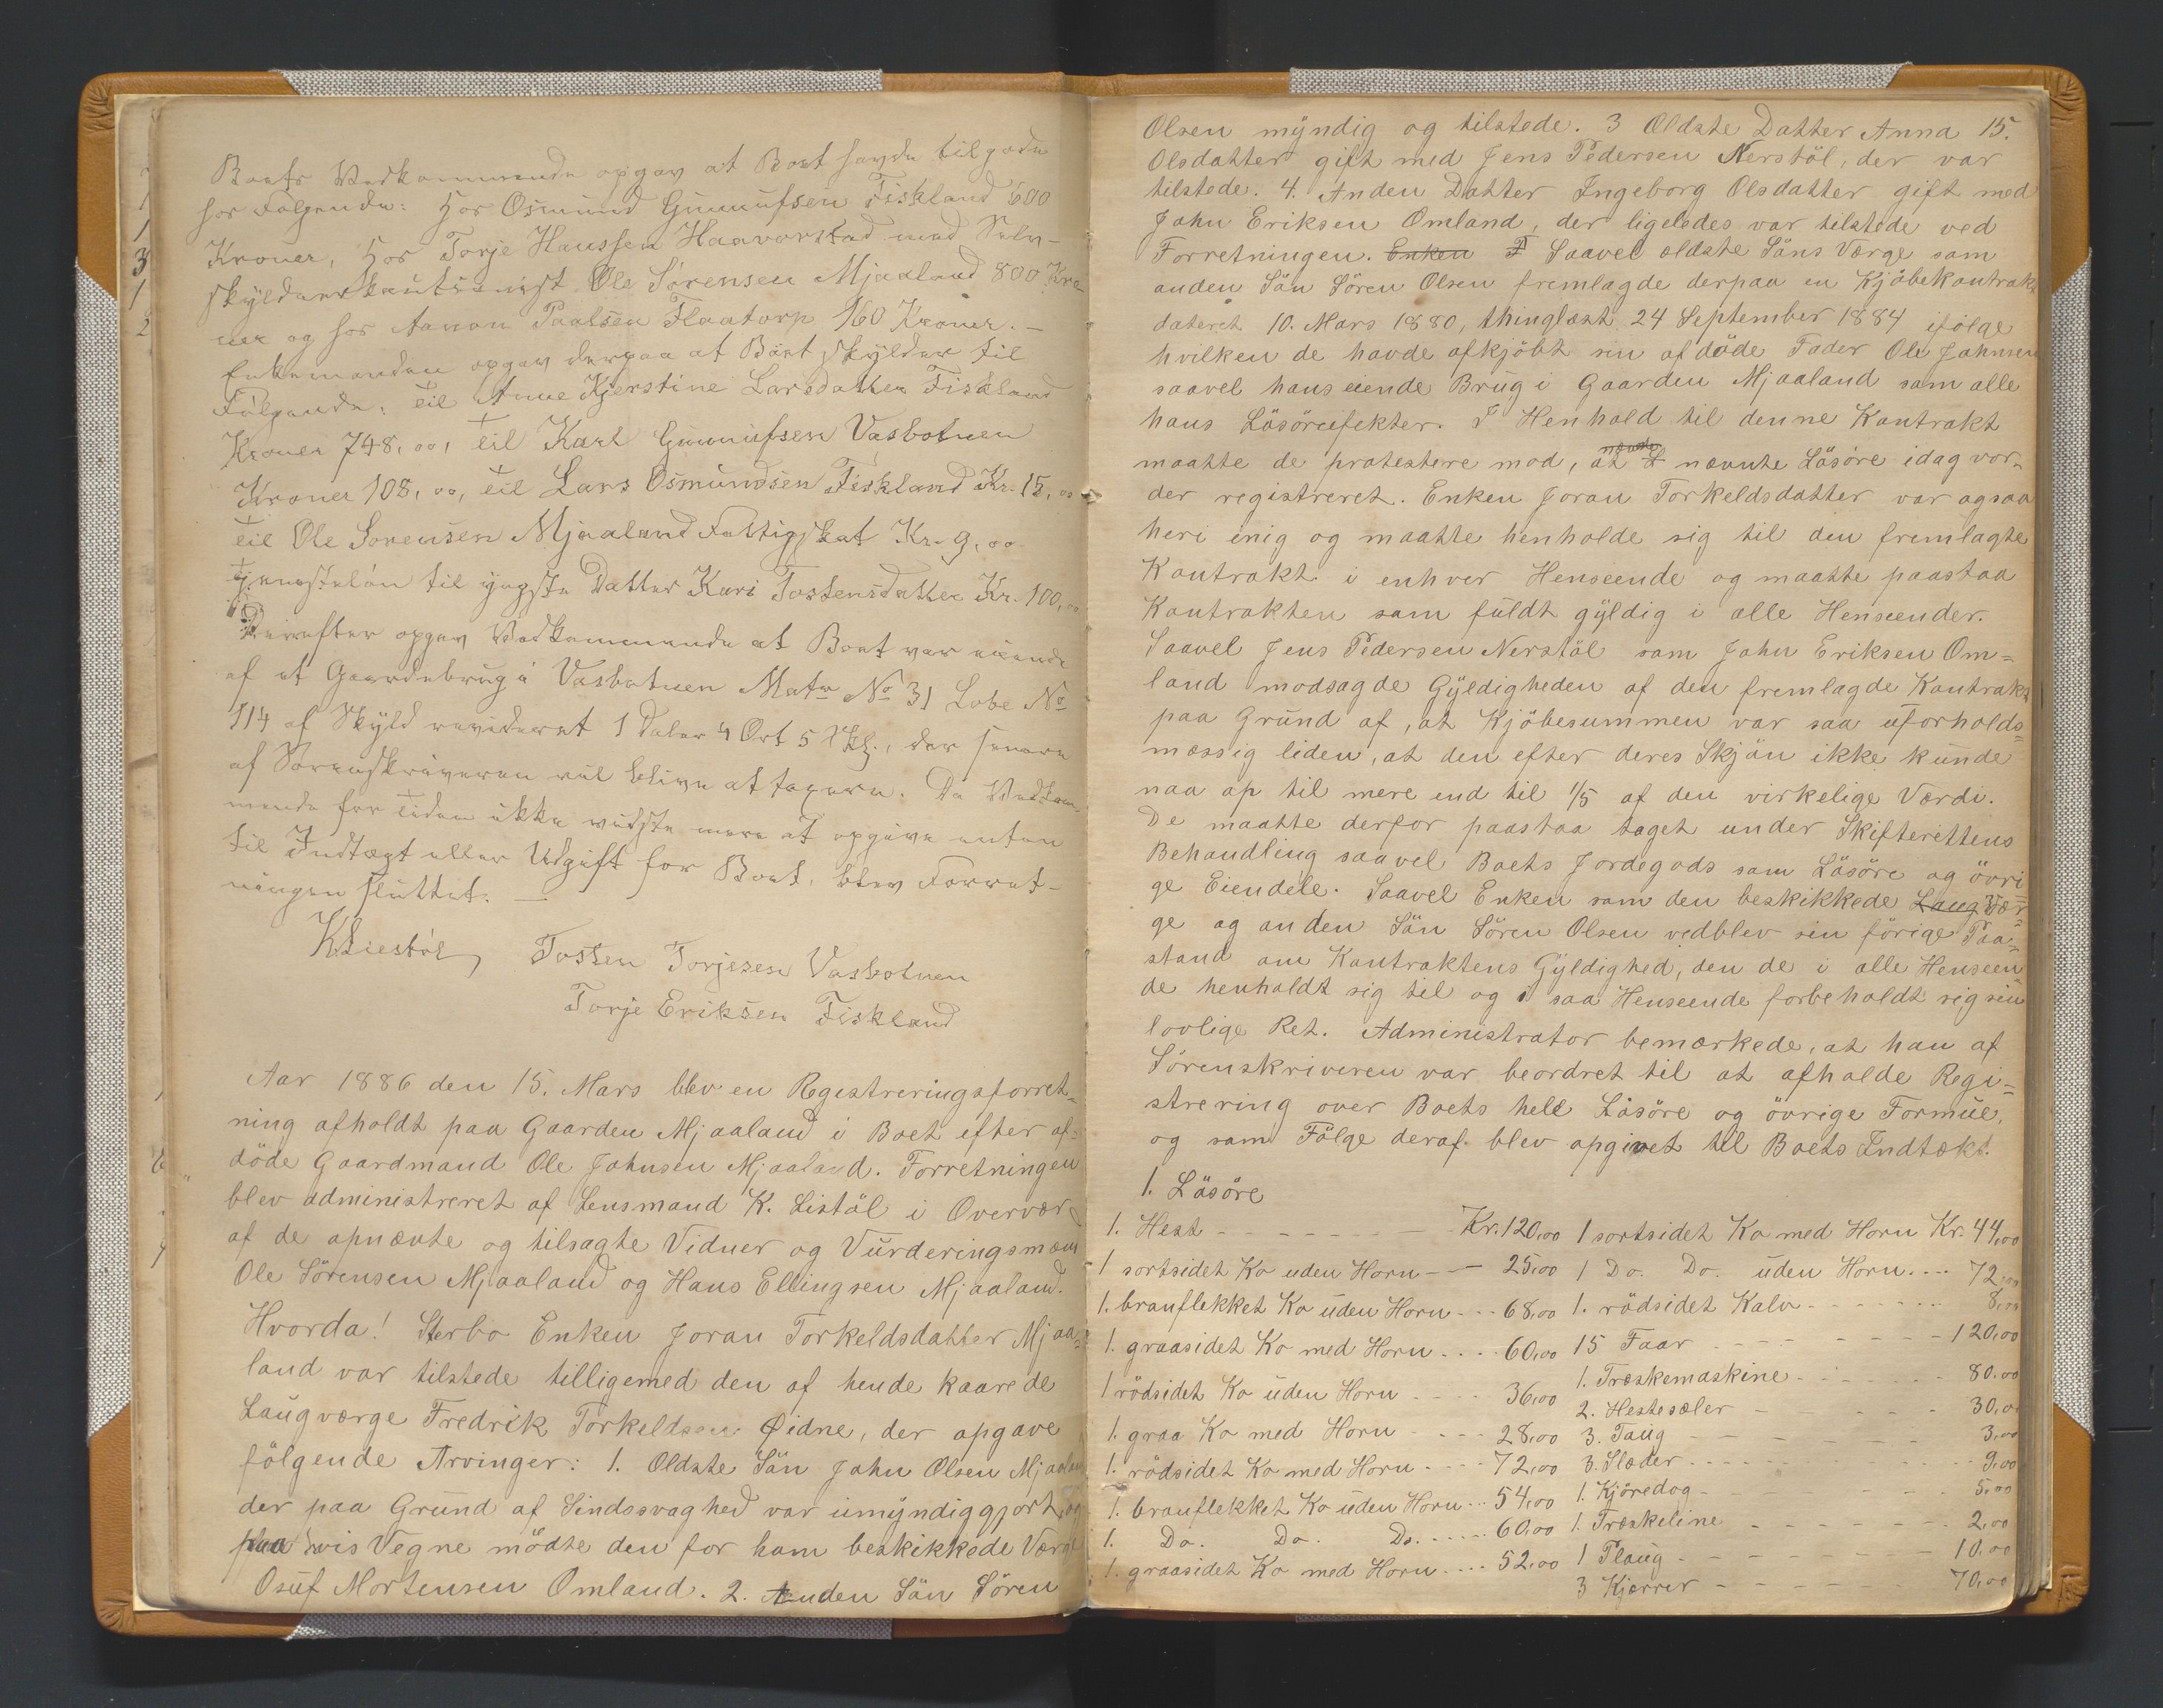 Boets Vedkommende opgav at Boet havde tilgode
hos Følgende: Hos Osmund Gunnufsen Fiskland 600
Kroner, Hos Torje Hanssen Haavorstad med Selv-
skyldnerkautionist Ole Sørensen Mjaaland 800 Kro-
ner og hos Aanon Paalsen Flaatorp 160 Kroner. –
Enkemanden opgav derpaa at Boet skylder til
Følgende: til Anne Kjerstine Larsdatter Fiskland
Kroner 748,00, til Karl Gunnufsen Vasbotnen
Kroner 108,00, til Lars Osmundsen Fiskland Kr. 15,00
til Ole Sorensen Mjaaland Fattigskat Kr. 9,00
Tjenesteløn til yngste Datter Kari Tostensdatter Kr. 100,00
Derefter opgav Vedkommende at Boet var eiende
af et Gaardebrug i Vasbotnen Matr No 31 Lobe No
114 af Skyld revideret 1 Daler 4 Ort 5 Skl., der senere
af Sorenskriveren vil blive at taxere. Da Vedkom-
mende for tiden ikke vidste mere at opgive enten
til Indtægt eller Udgift for Boet, blev Forret-
ningen sluttet. –
K Liestøl, Tosten Torjesen Vasbotnen
Torje Eriksen Fiskland
Aar 1886 den 15. Mars blev en Registreringsforret-
ning afholdt paa Gaarden Mjaaland i Boet efter af-
döde Gaardmand Ole Johnsen Mjaaland. Forretningen
blev administreret af Lensmand K. Listöl i Overvær
af de opnævnte og tilsagte Vidner og Vurderingsmænd
Ole Sörensen Mjaaland og Hans Ellingsen Mjaaland.
Hvorda! Sterbo Enken Joran Torkeldsdatter Mjaa-
land var tilstede tilligemed den af hende kaarede
Laugværge Fredrik Torkeldsen Øidne, der opgave
fölgende Arvinger: 1. Oldste Sön John Olsen Mjaaland
der paa Grund af Sindssvaghed var umyndiggjort, og
paa hvis Vegne mödte den for ham beskikkede Værge
Osuf Mortensen Omland. 2. Anden Sön Sören
Olsen myndig og tilstede. 3 Oldste Datter Anna 15.
Olsdatter gift med Jens Pedersen Nerstöl, der var
tilstede. 4. Anden Datter Ingeborg Olsdatter gift med
John Eriksen Omland, der ligeledes var tilstede ved
Forretningen. Enken Saavel ældste Söns Værge som
anden Sön Sören Olsen fremlagde derpaa en Kjöbekontrakt
dateret 10. Mars 1880, thinglæst 24 September 1884 ifölge
hvilken de havde afkjöbt sin afdöde Fader Ole Johnsen
saavel hans eiende Brug i Gaarden Mjaaland som alle
hans Lösöreefekter. I Henhold til denne Kontrakt
maatte de protestere mod, at nævnte Lösöre idag vor-
der registreret. Enken Joran Torkeldsdatter var ogsaa
heri enig og maatte henholde sig til den fremlagte
Kontrakt i enhver Henseende og maatte paastaa
Kontrakten som fuldt gyldig i alle Henseender.
Saavel Jens Pedersen Nerstöl som John Eriksen Om-
land modsagde Gyldigheden af den fremlagde Kontrakt
paa Grund af, at Kjöbesummen var saa uforholds-
mæssig liden, at den efter deres Skjön ikke kunde
naa op til mere end til 1/5 af den virkelige Værdi.
De maatte derfor paastaa taget under Skifterettens
Behandling saavel Boets Jordegods som Lösöre og övri-
ge Eiendele. Saavel Enken som den beskikkede Laug Vær-
ge og anden Sön Sören Olsen vedblev sin förige Paa-
stand om Kontraktens Gyldighed, den de i alle Henseen-
de henholdt sig til og i saa Henseende forbeholdt sig sin
lovlige Ret. Administrator bemærkede, at han af
Sörenskriveren var beordret til at afholde Regi-
strering over Boets hele Lösöre og övrige Formue,
og som Fölge deraf blev opgivet til Boets Indtækt.
1. Lösöre
1. Hest Kr. 120,00 1 sortsidet Ko med Horn Kr. 44,00
1 sortsidet Ko uden Horn 25,00 1 Do. Do. uden Horn 72,00
1. branflekket Ko uden Horn 68,00 1. rödsidet Kalv 8,00
1. graasidet Ko med Horn 60,00 15 Faar 120,00
1 rödsidet Ko uden Horn 36,00 1. Træskemaskine 80,00
1. graa Ko med Horn 28,00 2. Hestesæler 30,00
1. rödsidet Ko med Horn 72,00 3. Taug 3,00
1. branflekket Ko uden Horn 54,00 3. Slæder 9,00
1. Do. Do. Do. 60,00 1. Kjöredog 5,00
1. graasidet Ko med Horn 52,00 1. Træskeline 2,00
1 Plaug 10,00
3 Kjærrer 70,00